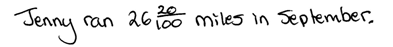 Jenny ran 26 20/100 miles in September.